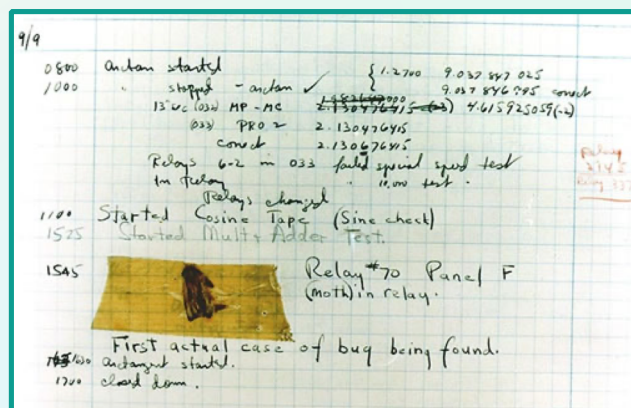 9/9
0800 antan started
1000 " stopped - antan ✓ { 1.2700 9.037 847 025
9.037 846 995 conect
13"uc (032) MP - MC 2.130476415 (-3) 4.615925059(-2)
(033) PRO 2 2.130476415
conect 2.130676415
Relays 6-2 in 033 failed special speed test
In Relay " 10,000 test .
Relays changed
1100 Started Cosine Tape (Sine check)
1525 Started Mult + Adder Test.
1545 Relay #70 Panel F
(moth) in relay.
First actual case of bug being found.
1630 antangent started.
1700 closed down .
Relay